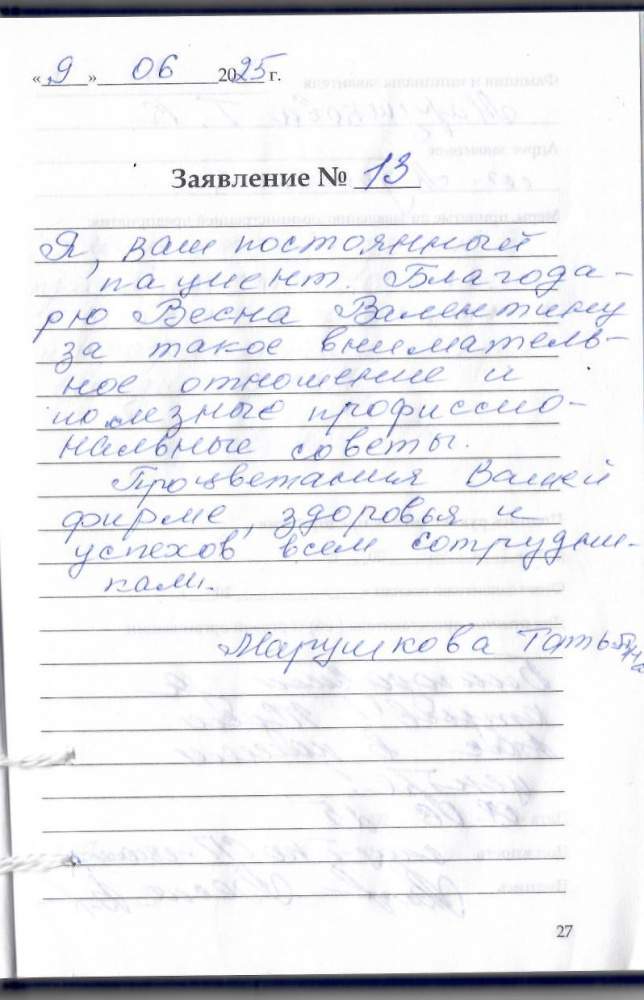 « 9 » 06 2025 г.
Заявление № 13
Я, ваш постоянный
пациент. Благода-
рю Весна Валентину
за такое вниматель-
ное отношение и
полезные профиссио-
нальные советы.
Процветания Вашей
фирме, здоровья и
успехов всем сотрудни-
кам.
Марушкова Татьяна
27